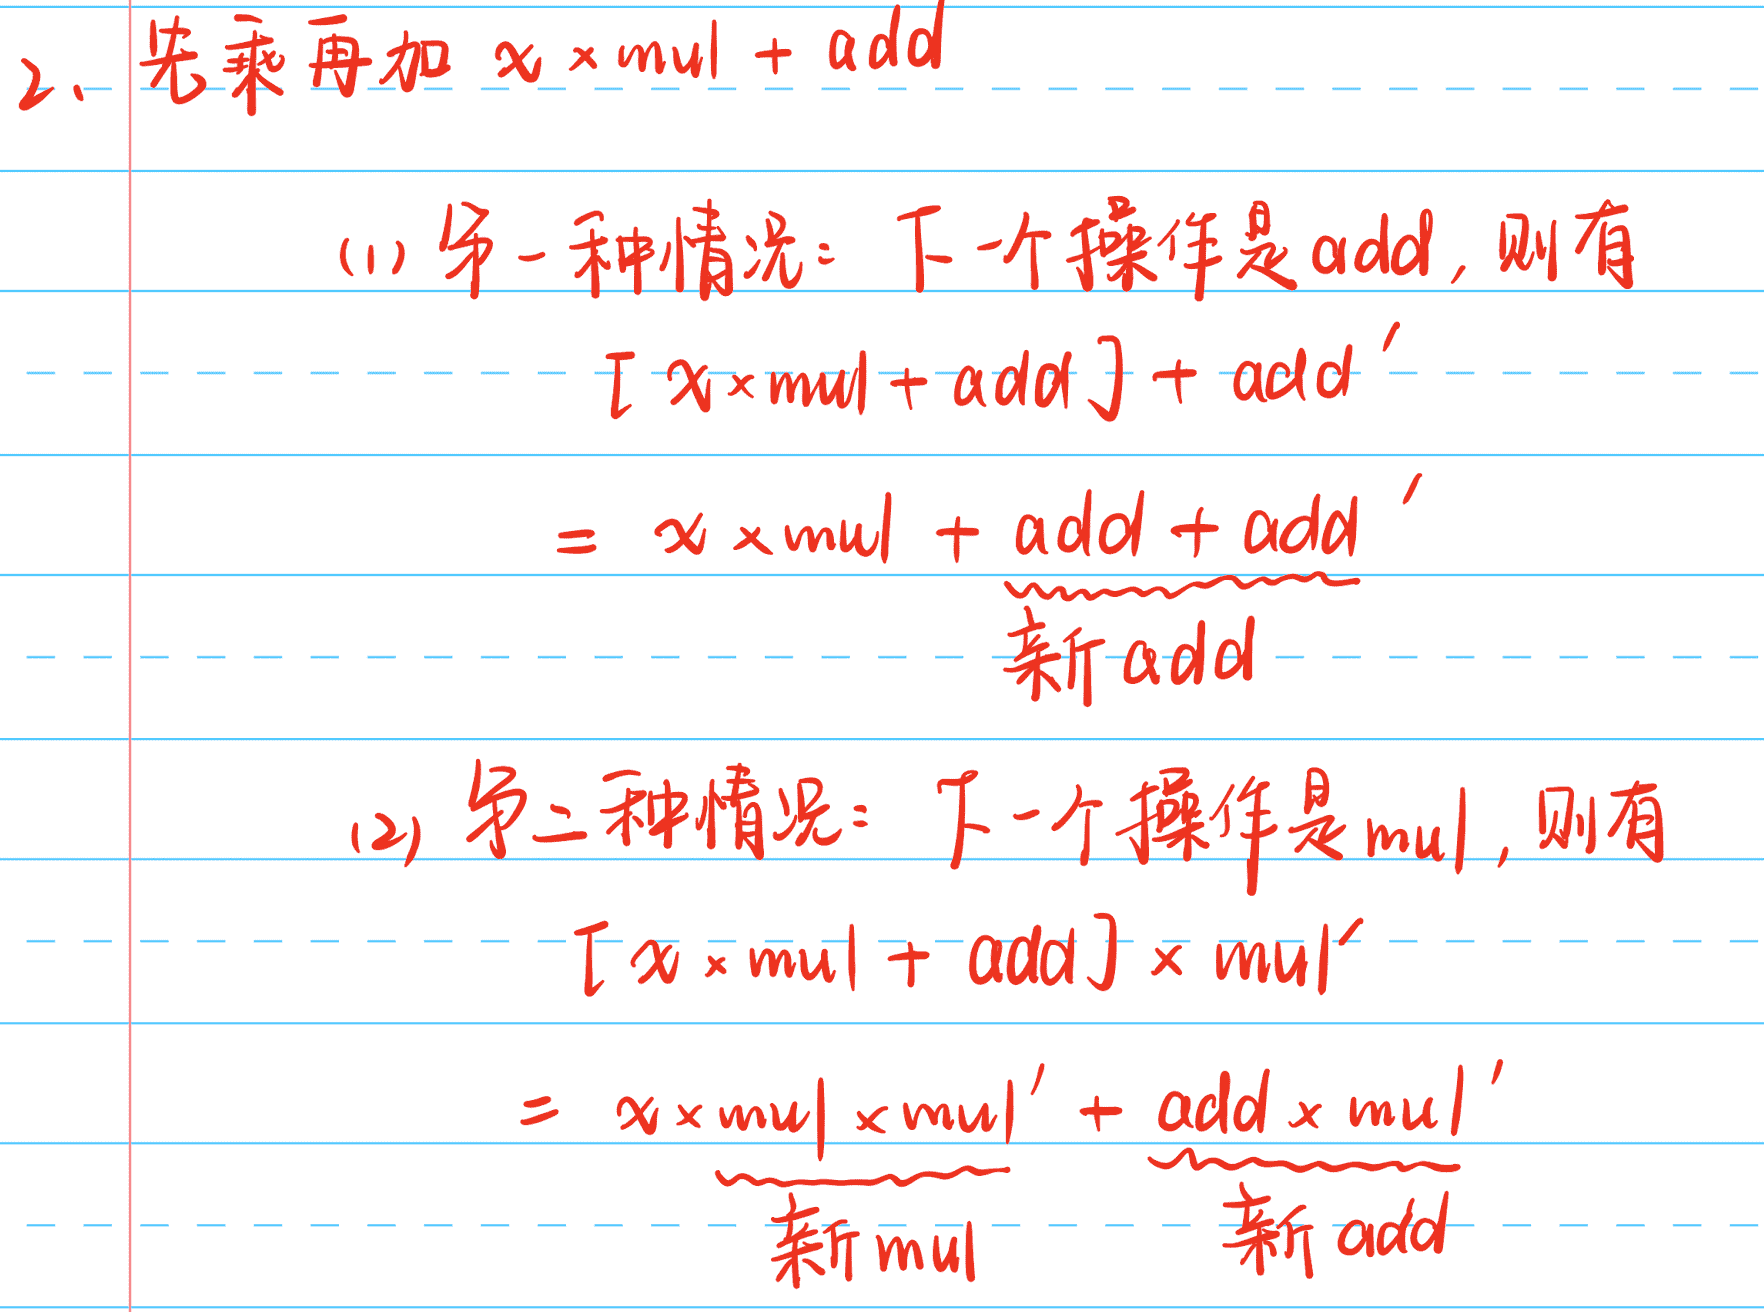 2、先乘再加 x × mul + add
(1) 第一种情况：下一个操作是add，则有
[x × mul + add] + add'
= x × mul + add + add'
新add
(2) 第二种情况：下一个操作是mul，则有
[x × mul + add] × mul'
= x × mul × mul' + add × mul'
新mul 新add